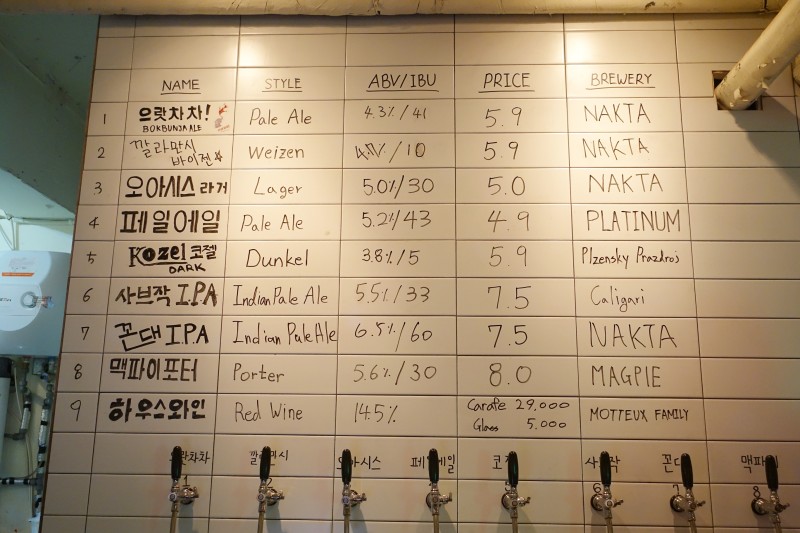 NAME STYLE ABV/IBU PRICE BREWERY
1 으랏차차! Pale Ale 4.3%/41 5.9 NAKTA
BOKBUNJA ALE
2 깔라만시 바이젠 Weizen /10 5.9 NAKTA
3 오아시스 라거 Lager 5.0%/30 5.0 NAKTA
4 페일에일 Pale Ale 5.2%/43 4.9 PLATINUM
5 Kozel 코젤 Dunkel 3.8%/5 5.9 Plzensky Prazdroj
DARK
6 사브작 I.P.A Indian Pale Ale 5.5%/33 7.5 Caligari
7 꼰대 I.P.A Indian Pale Ale 6.5%/60 7.5 NAKTA
8 맥파이포터 Porter 5.6%/30 8.0 MAGPIE
9 하우스와인 Red Wine 14.5% Carafe 29,000 MOTTEUX FAMILY
Glass 5,000